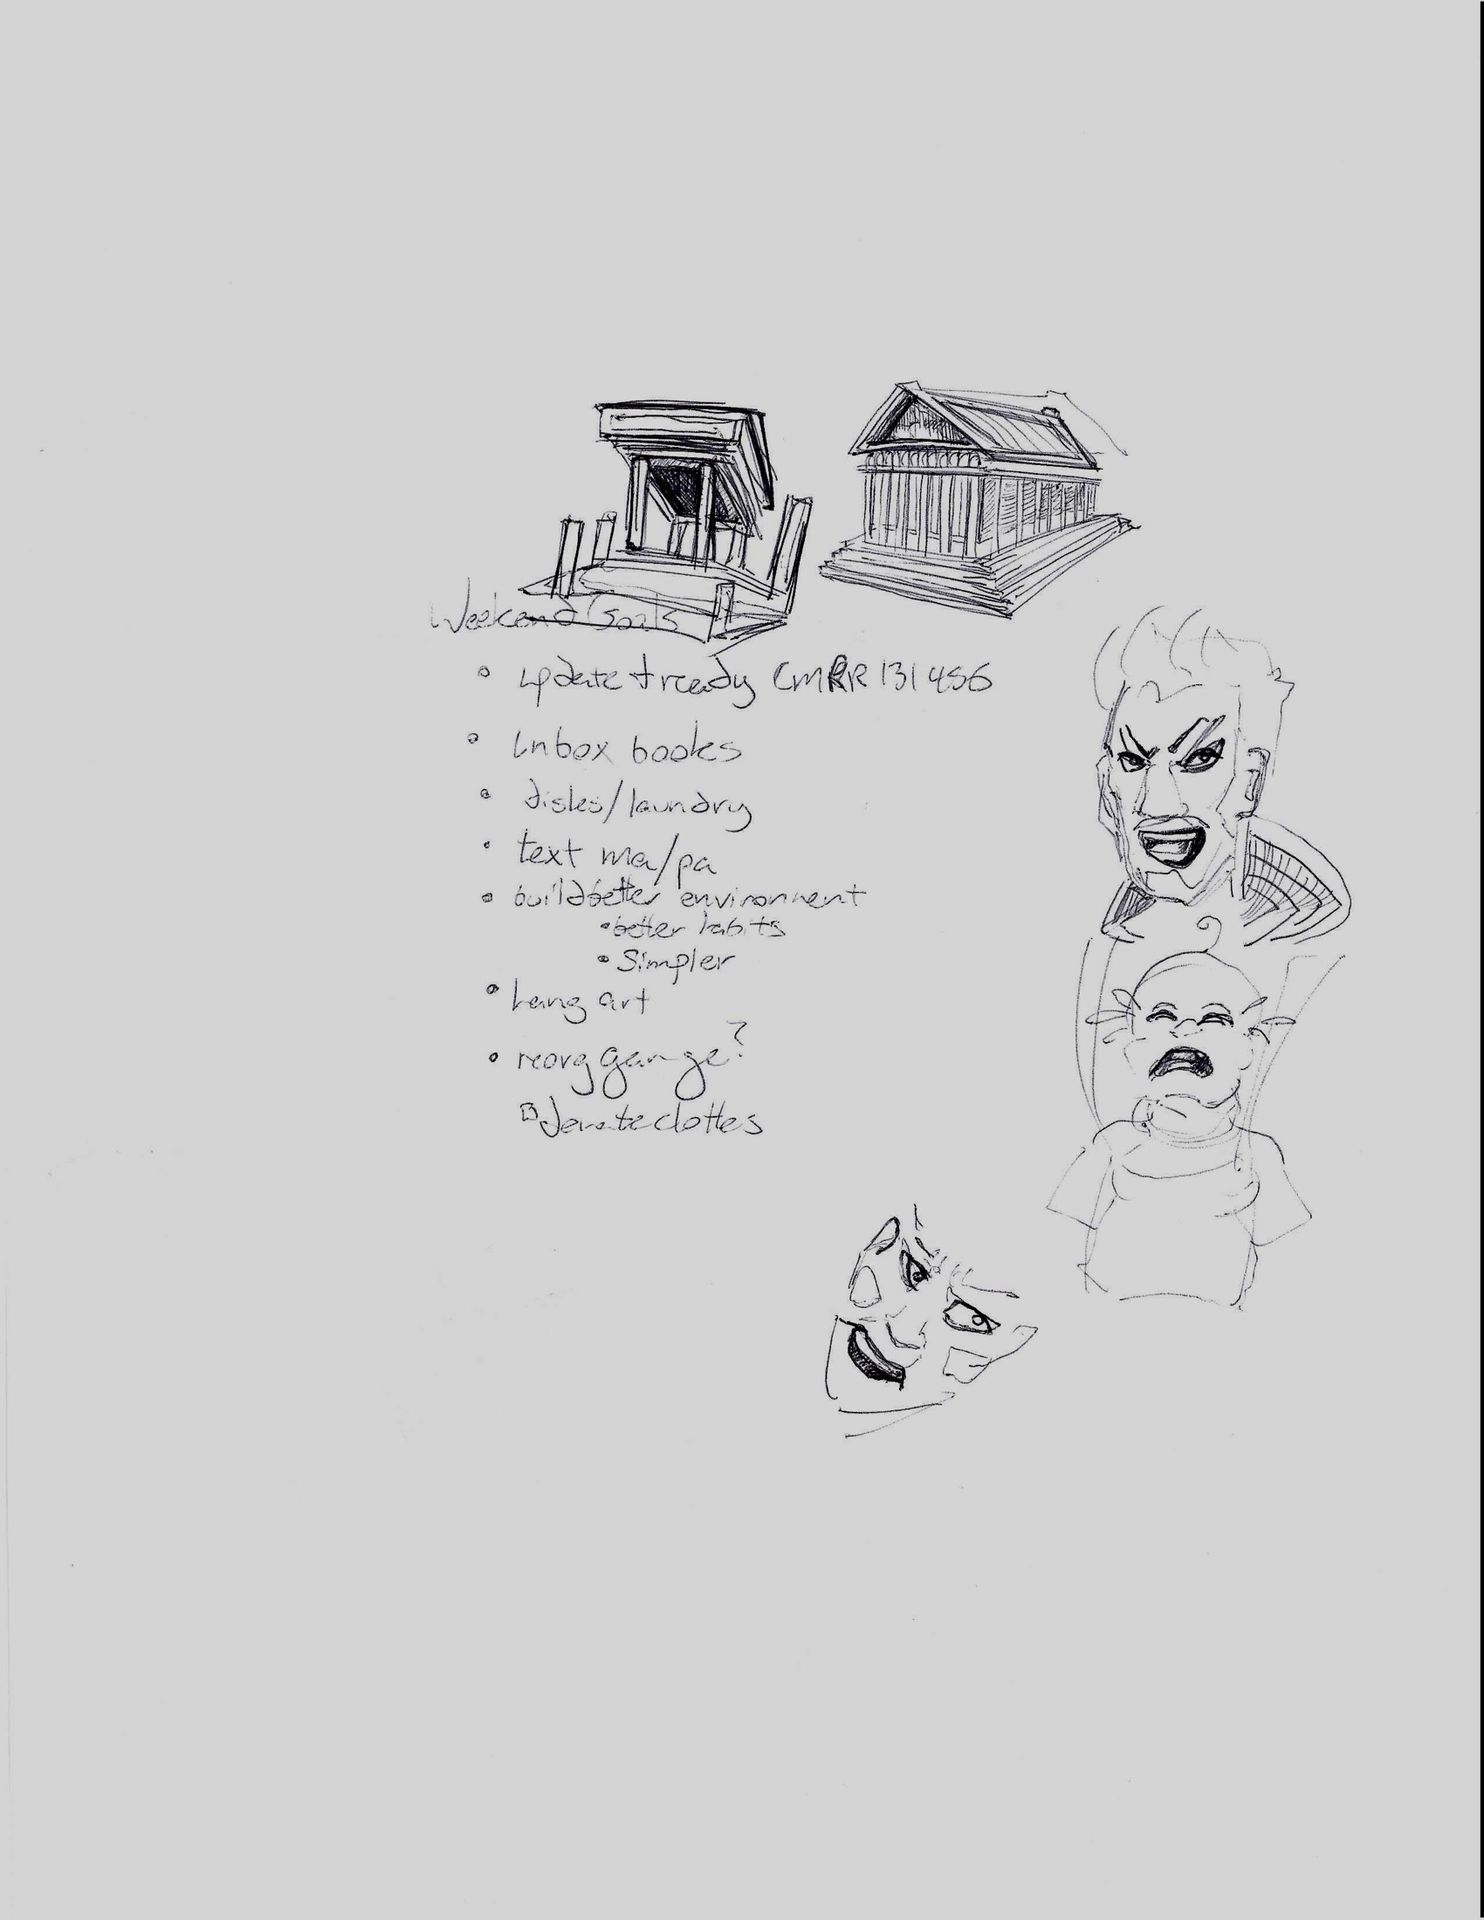 Weekend Goals
• update + ready CMRR 131 456
• unbox books
• dishes/laundry
• text ma/pa
• build better environment
• better habits
• Simpler
• hang art
• reorg garage?
donate clothes